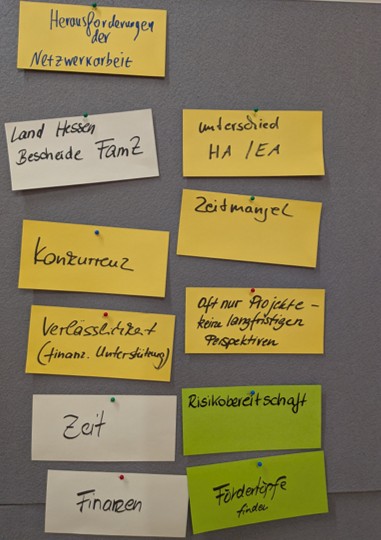 Herausforderungen
der
Netzwerkarbeit
Land Hessen
Bescheide FamZ
Unterschied
HA / EA
Zeitmangel
Konkurrenz
oft nur Projekte –
keine langfristigen
Perspektiven
Verlässlichkeit
(finanz. Unterstützung)
Zeit
Risikobereitschaft
Finanzen
Fördertöpfe
finden